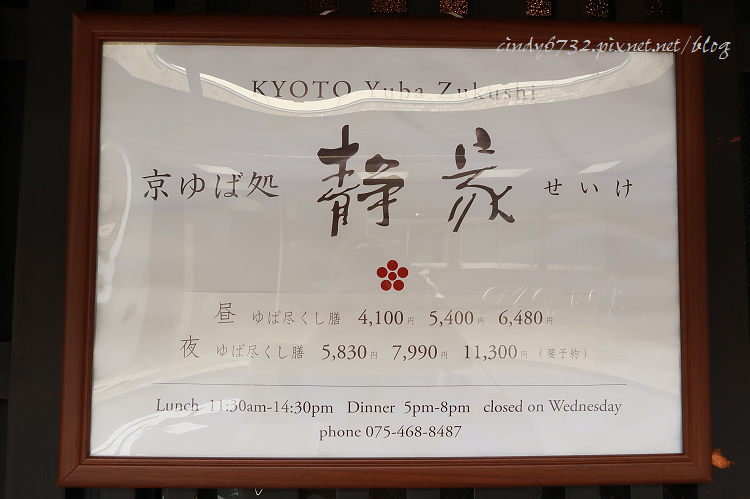 cindy6732.pixnet.net/blog
KYOTO Yuba Zukushi
京ゆば処 静家 せいけ
昼 ゆば尽くし膳 4,100円 5,400円 6,480円
夜 ゆば尽くし膳 5,830円 7,990円 11,300円 (要予約)
Lunch 11:30am-14:30pm Dinner 5pm-8pm closed on Wednesday
phone 075-468-8487